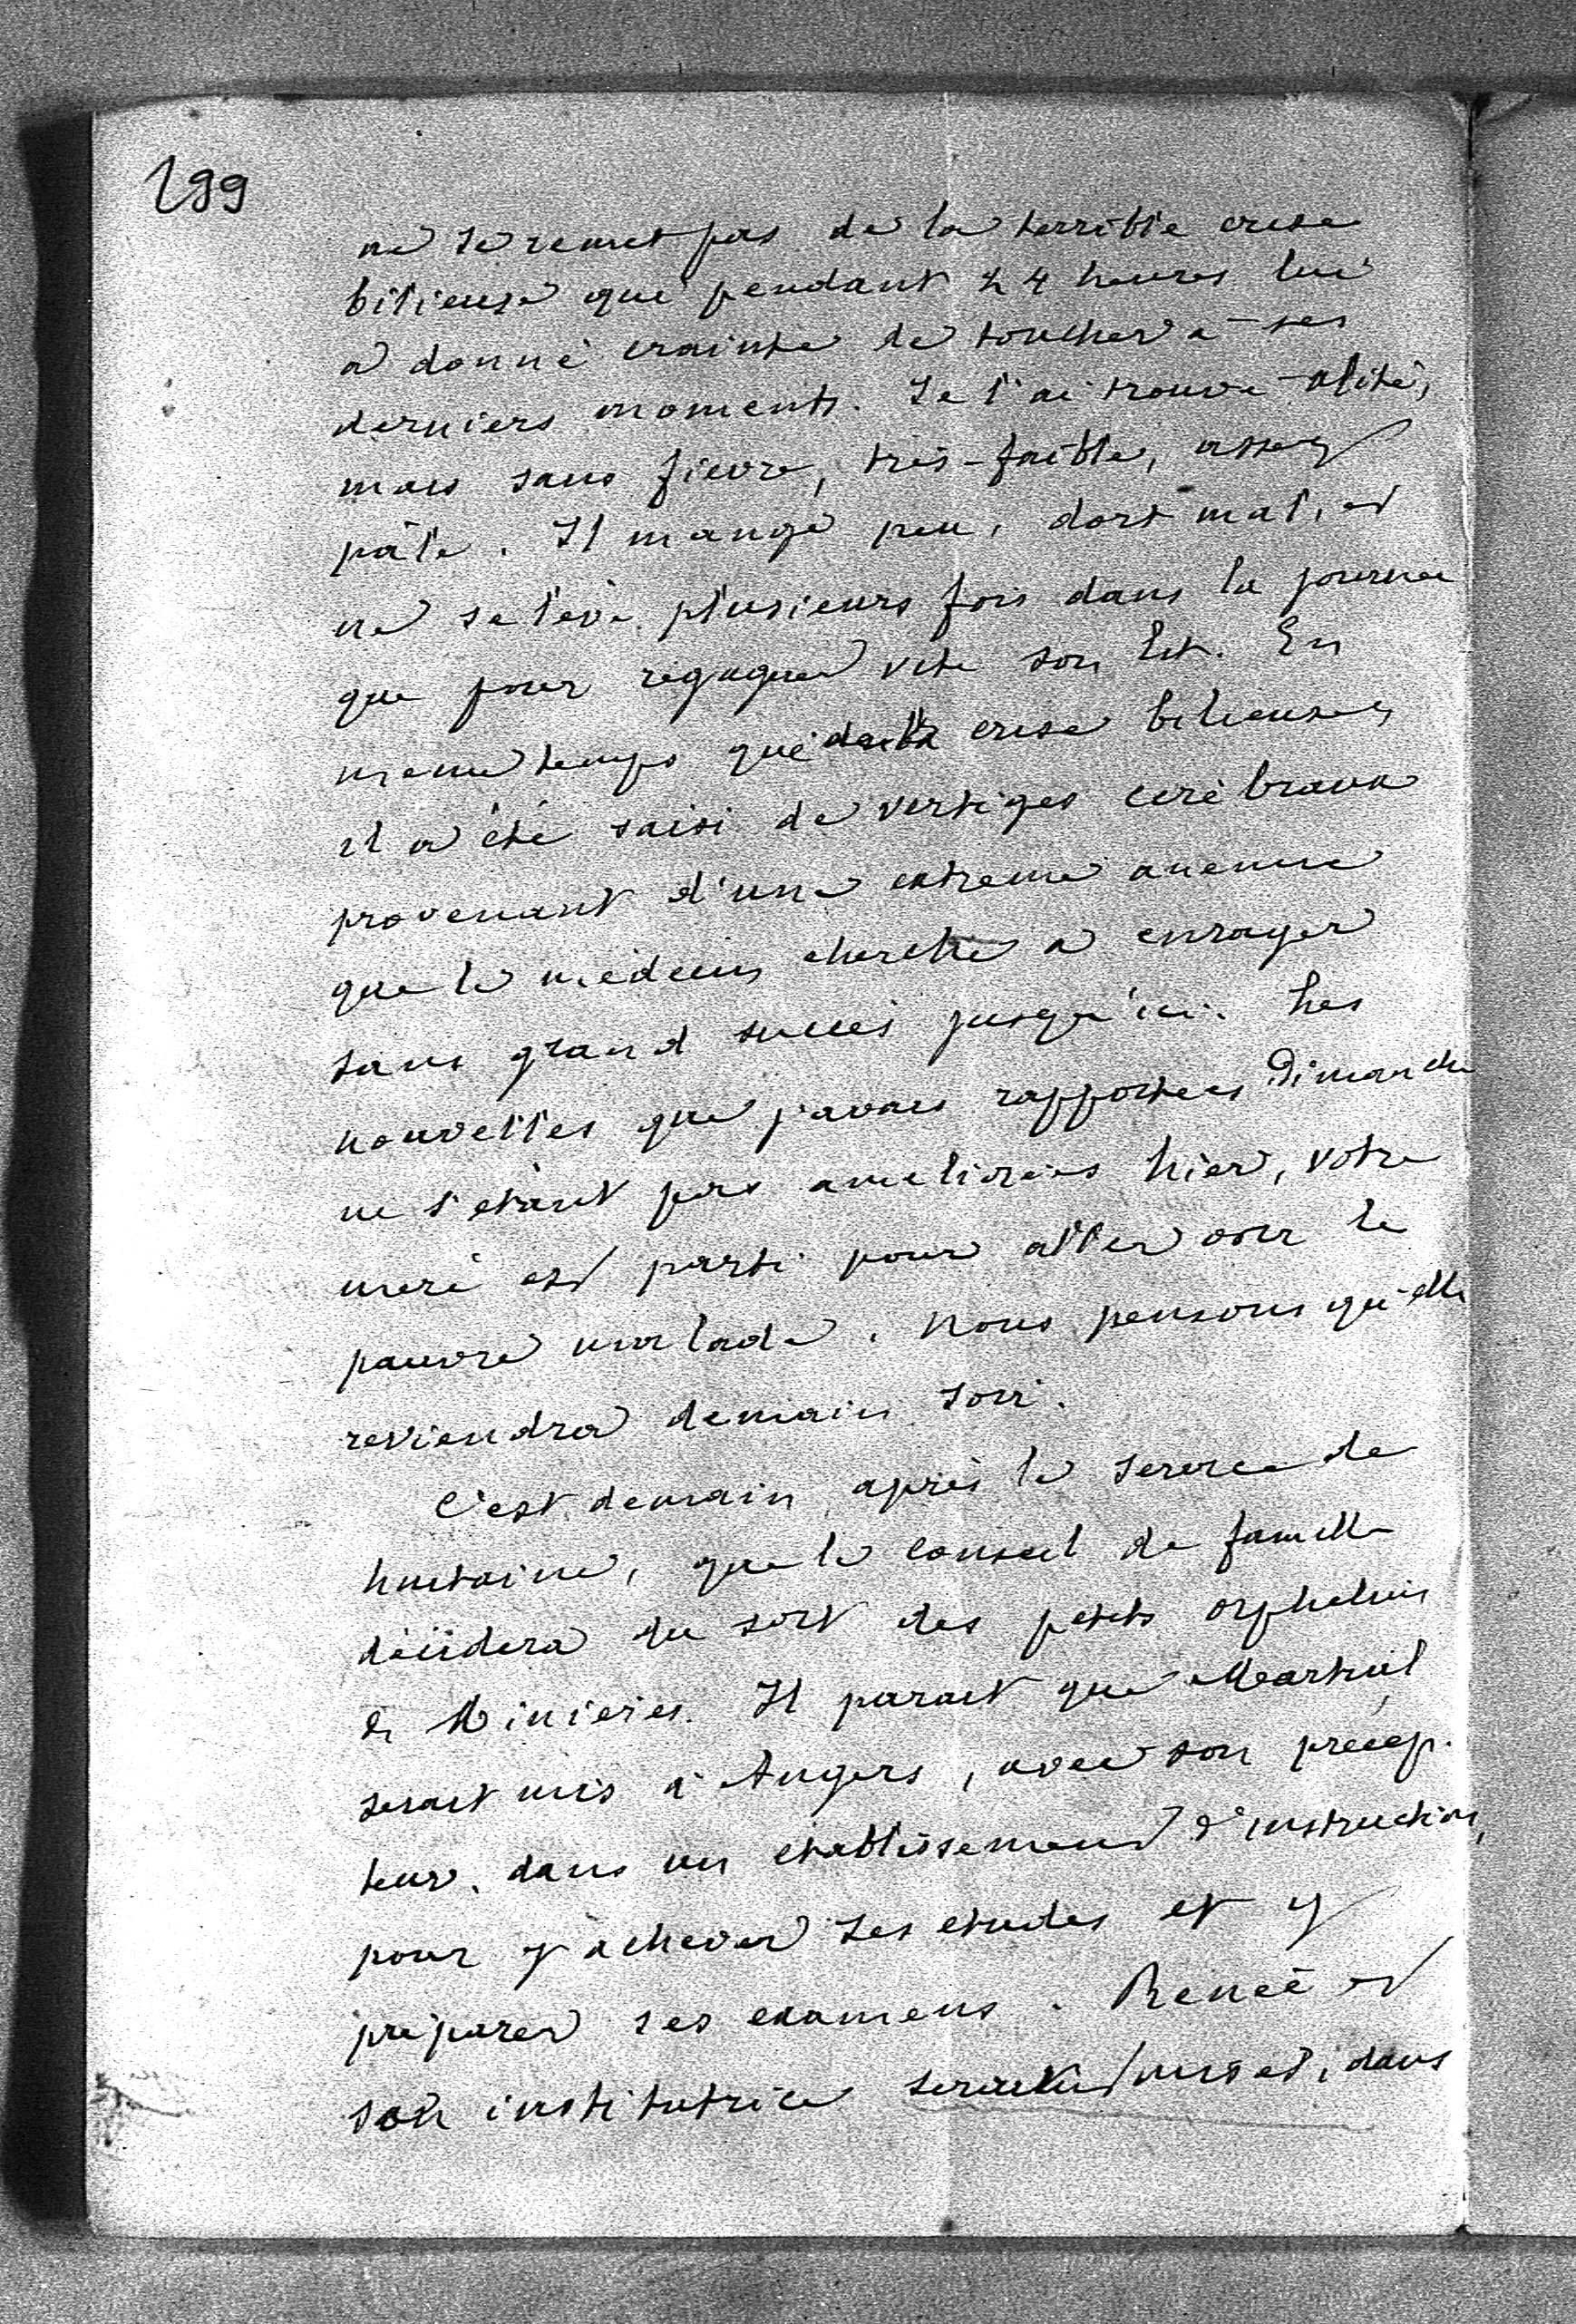 199
ne se remet pas de la terrible crise
bilieuse qui pendant 24 heures lui
a donné crainte de toucher à ses
derniers moments. Je l'ai trouvé alité,
mais sans fièvre, très-faible, assez
pâle. Il mange peu, dort mal, et
ne se lève plusieurs fois dans la journée
que pour regagner vite son lit. En
même temps que de la crise bilieuse,
il a été saisi de vertiges cérébraux
provenant d'une extrême anémie
que le médecin cherche à enrayer
sans grand succès jusqu'ici. Les
nouvelles que j'avais rapportées Dimanche
ne s'étant pas améliorées hier, votre
mère est parti pour aller voir le
pauvre malade. Nous pensons qu'elle
reviendra demain soir.
C'est demain, après le service de
huitaine, que le conseil de famille
décidera du sort des petits orphelins
de Minières. Il parait que Martial
serait mis à Angers, avec son précep-
teur, dans un établissement d'instruction,
pour y achever ses études et y
préparer ses examens. Renée et
son institutrice seraient mises, dans